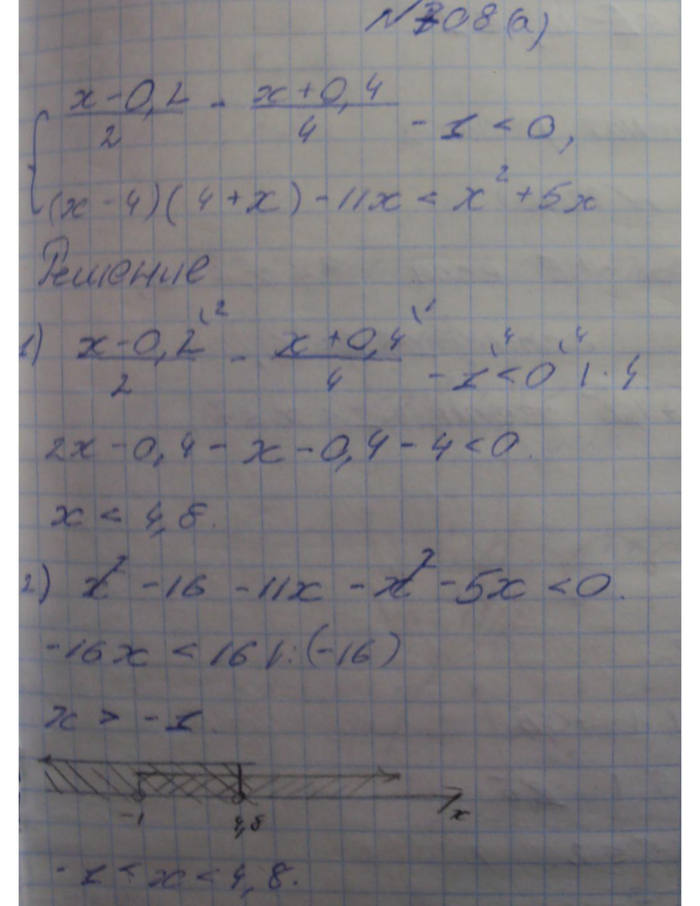 №708(а)
{ (x-0,2)/2 - (x+0,4)/4 - 1 < 0,
(x-4)(4+x) - 11x < x² + 5x
Решение
1) (x-0,2)/2 \2 - (x+0,4)/4 \1 - 1 \4 < 0 \4 | · 4
2x - 0,4 - x - 0,4 - 4 < 0.
x < 4,8.
2) x² - 16 - 11x - x² - 5x < 0.
-16x < 16 | : (-16)
x > -1.
-1 4,8 x
-1 < x < 4,8.